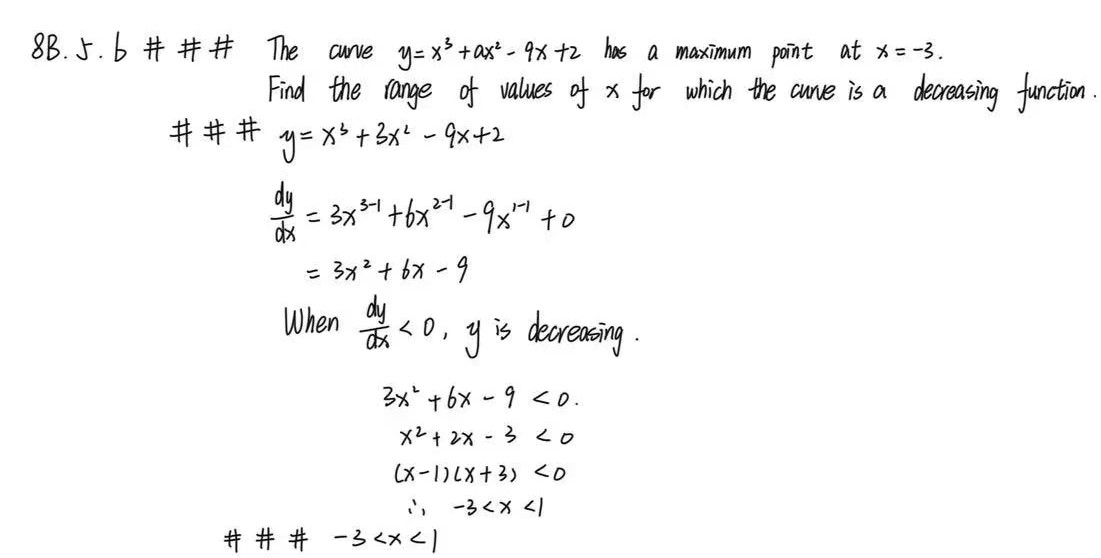 8B. 5. b # # # The curve y = x³ + ax² - 9x + 2 has a maximum point at x = -3.
Find the range of values of x for which the curve is a decreasing function.
# # # y = x³ + 3x² - 9x + 2
dy/dx = 3x³⁻¹ + 6x²⁻¹ - 9x¹⁻¹ + 0
= 3x² + 6x - 9
When dy/dx < 0, y is decreasing.
3x² + 6x - 9 < 0.
x² + 2x - 3 < 0
(x-1)(x+3) < 0
∴ -3 < x < 1
# # # -3 < x < 1